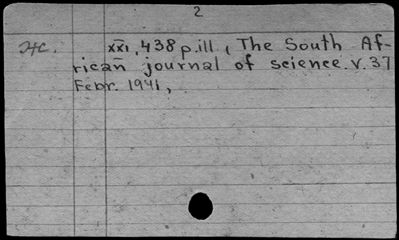 2
xxi, 438 p. ill, The South Af-
rican journal of science. v. 37
Febr. 1941,